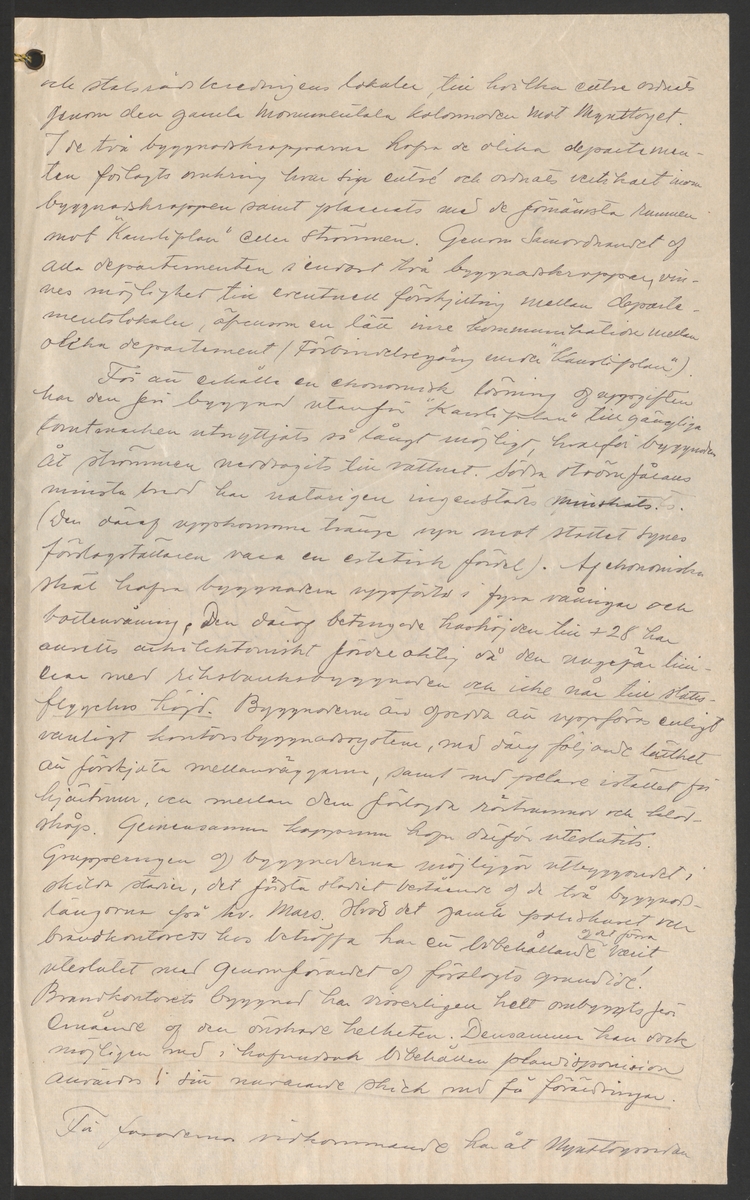 och statsrådsberedningens lokaler, till hvilka entré ordnats
genom den gamla monumentala kolonnaden mot Mynttorget.
I de två byggnadskropparna hafva de olika departemen-
ten förlagts omkring hvar sin entré och ordnats vertikalt inom
byggnadskroppen samt placerats med de förnämsta rummen
mot "Kansliplan" eller Strömmen. Genom samordnandet af
alla departementen i endast två byggnadskroppar, vin-
nes möjlighet till eventuell förskjutning mellan departe-
mentslokaler, äfvensom en lätt inre kommunikation mellan
olika departement (Förbindelsegång under "Kansliplan").
För att erhålla en ekonomisk lösning af uppgiften
har den för byggnad utanför "Kansliplan" tillgängliga
tomtmarken utnyttjats så långt möjligt, hvarför byggnaden
åt strömmen nerdragits till vattnet. Södra strömfårans
minsta bredd har naturligen ingenstädes minskats.
(Den däraf uppkomna trånga vyn mot slottet synes
förslagställaren vara en estetisk fördel). Af ekonomiska
skäl hafva byggnaderna uppförts i fyra våningar och
bottenvåning. Den däraf betingade hushöjden till +28 har
ansetts arkitektoniskt fördelaktig då den ungefär lini-
erar med riksbanksbyggnaden och icke når till slotts-
flyglens höjd. Byggnaderna äro afsedda att uppföras enligt
vanligt kontorsbyggnadssystem, med däraf följande lätthet
att förskjuta mellanväggarna, samt med pelare istället för
hjärtmur, och mellan dem förlagda rörtrummor och kläd-
skåp. Gemensamma kapprum hafva därför uteslutits.
Grupperingen af byggnaderna möjliggör utbyggandet i
skilda stadier, det första stadiet bestående af de två byggnads-
längorna från kv. Mars. Hvad det gamla polishuset och
brandkontorets hus beträffa har ett bibehållande af det förra varit
uteslutet med genomförandet af förslagets grundidé.
Brandkontorets byggnad har visserligen helt ombyggts för
ernående af den önskade helheten. Densamma kan dock
möjligen med i hufvudsak bibehållen plandisposition
användas i sitt nuvarande skick med få förändringar.
För fasaderna vidkommande har åt Mynttorgssidan